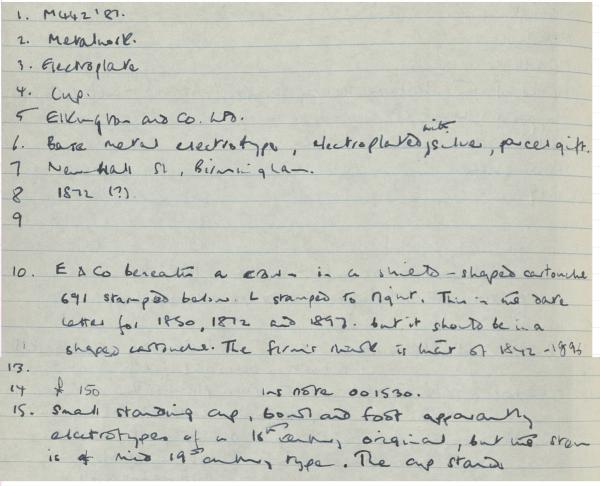 1. M442'87.
2. Metalwork.
3. Electroplate
4. Cup.
5 Elkington and Co. Ltd.
6. Base metal electrotype, electroplated with silver, parcel gilt.
7 Newhall St, Birmingham.
8 1872 (?)
9
10. E & Co beneath a crown in a shield-shaped cartouche
691 stamped below. L stamped to right. This is the date
letter for 1850, 1872 and 1897. but it should be in a
shaped cartouche. The firm's mark is that of 1842-1896
13.
14 £ 150 Ins note 001530.
15. Small standing cup, bowl and foot apparently
electrotypes of a 16th century original, but the stem
is of mid 19th century type. The cup stands